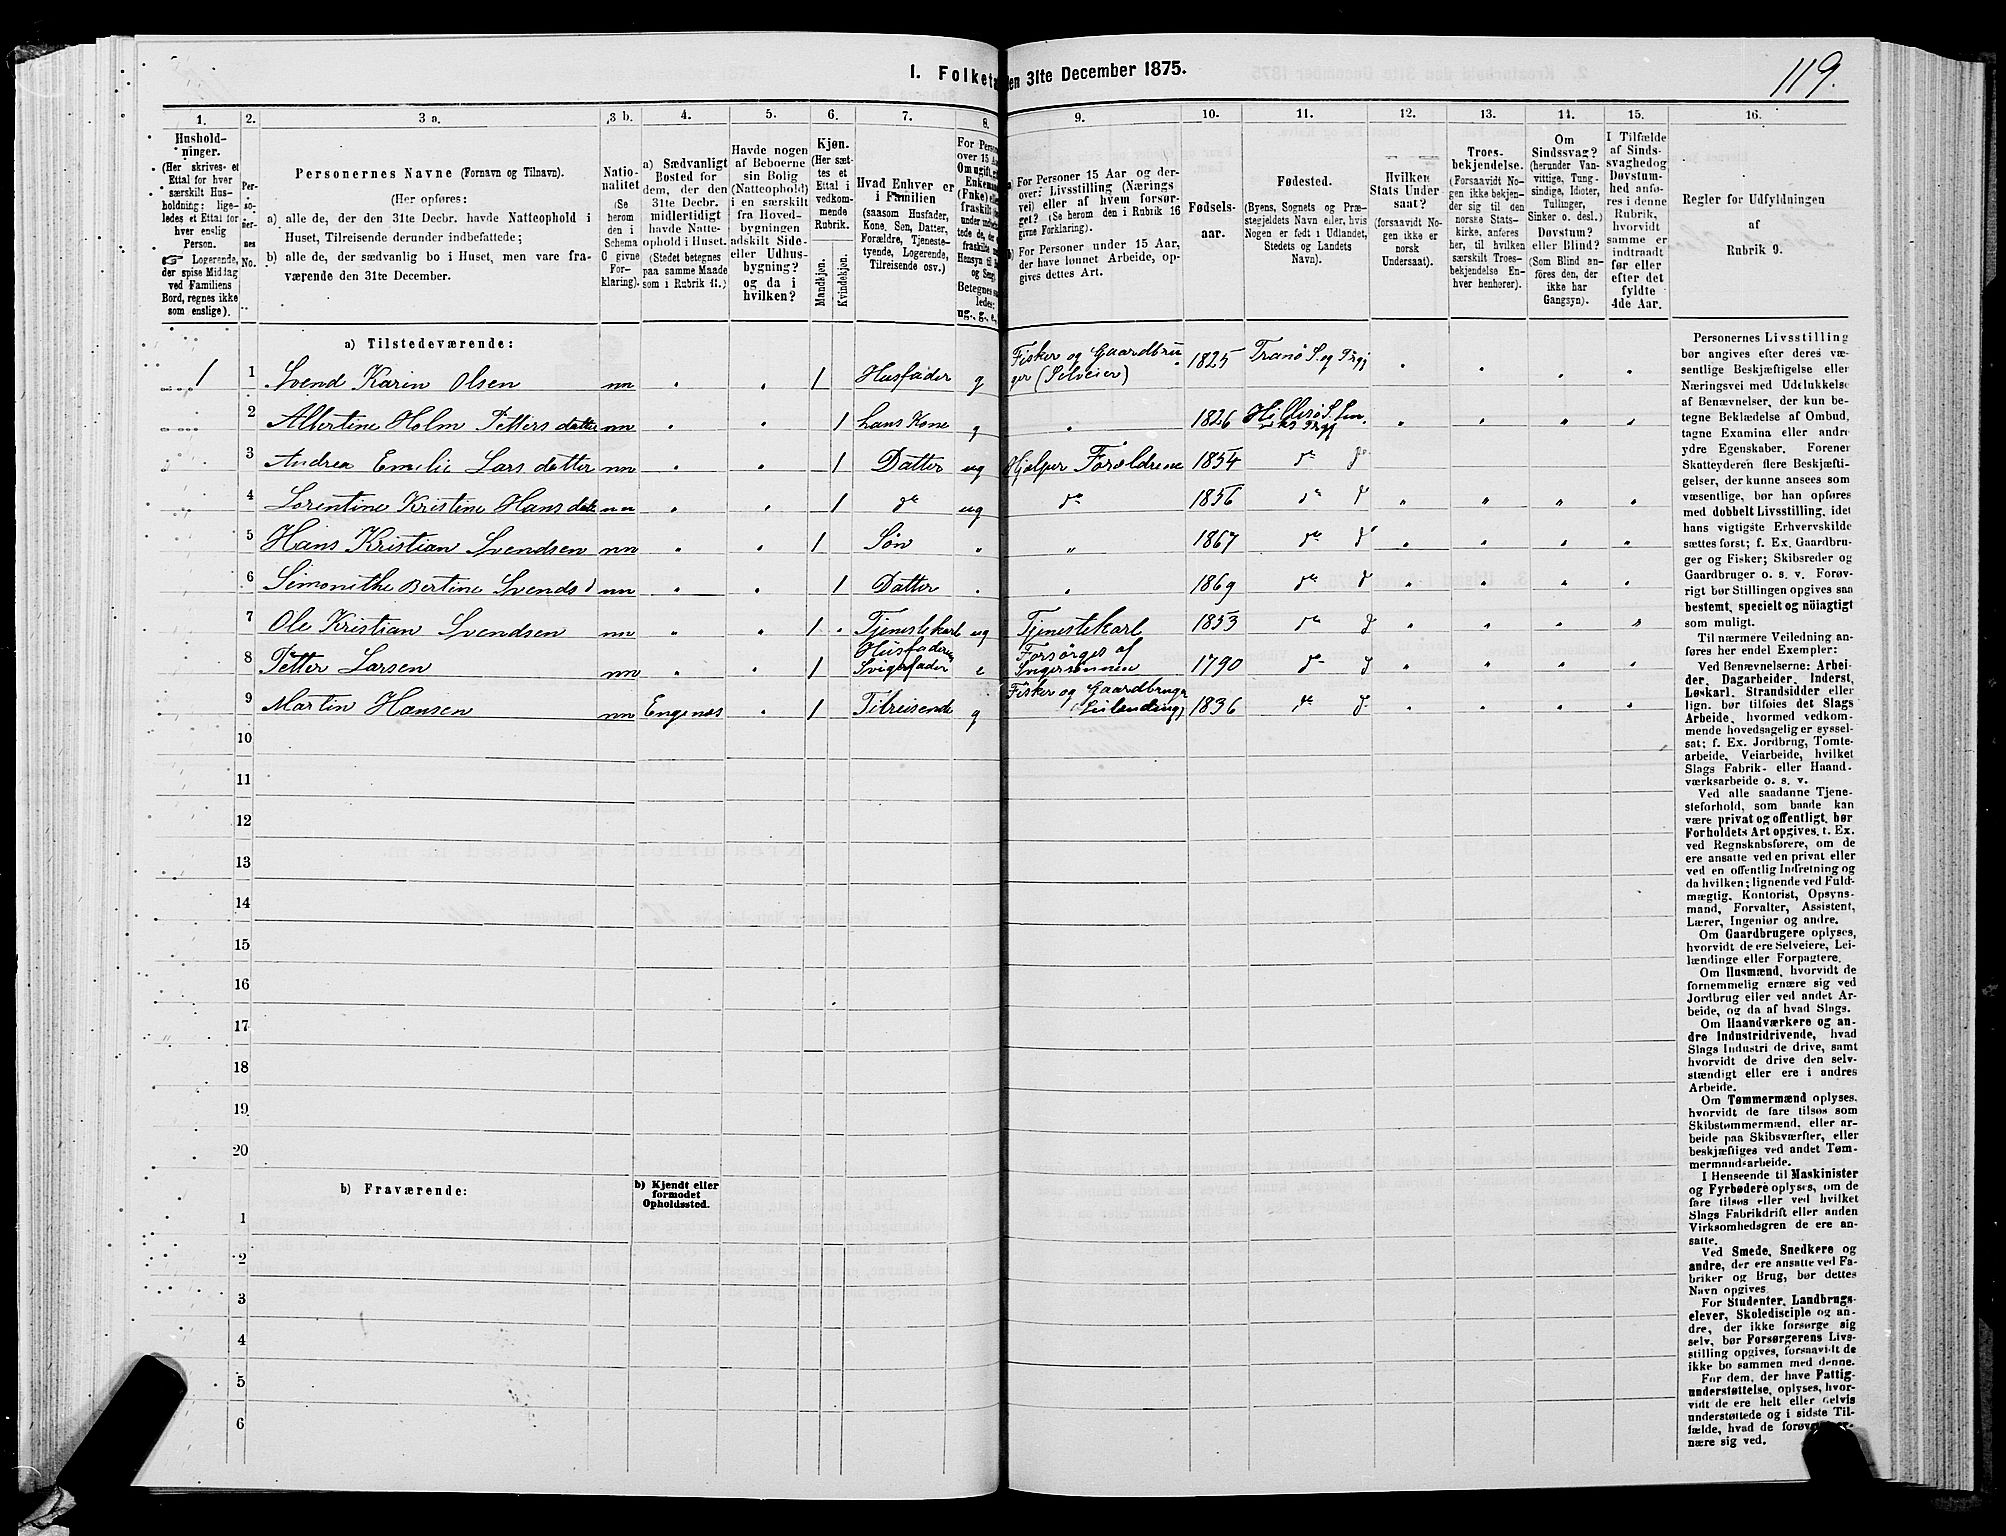 119.
1. Folketæ
en 31te December 1875.
1.
Hushold-
ninger.
(Her skrives et
Ettal for hver
særskilt Hus-
holdning; lige-
ledes et Ettal for
hver enslig
Person.
☞ Logerende,
der spise Middag
ved Familiens
Bord, regnes ikke
som enslige).
2.
Per-
so-
ner-
nes
No.
3 a.
Personernes Navne (Fornavn og Tilnavn).
(Her opføres:
a) alle de, der den 31te Decbr. havde Natteophold i
Huset, Tilreisende derunder indbefattede;
b) alle de, der sædvanlig bo i Huset, men vare fra-
værende den 31te December.
3 b.
Natio-
nalitet
(Se
herom
den i
Schema
C givne
For-
klaring).
4.
a) Sædvanligt
Bosted for
dem, der den
31te Decbr.
midlertidigt
havde Natte-
ophold i Huset.
(Stedet betegnes
paa samme Maade
som i Rubrik 11.)
5.
Havde nogen
af Beboerne
sin Bolig
(Natteophold)
i en særskilt
fra Hoved-
bygningen
adskilt Side-
eller Udhus-
bygning?
og da i
hvilken?
6.
Kjøn.
(Her sæt-
tes et
Ettal i
vedkom-
mende
Rubrik.
Mandkjøn.
Kvindekjøn.
7.
Hvad Enhver er
i Familien
(saasom Husfader,
Kone, Søn, Datter,
Forældre, Tjeneste-
tyende, Logerende,
Tilreisende osv.)
8.
For Person
over 15 Aa
Om ugift, g
Enkema
(Fnke) elle
fraskilt
9.
a) For Personer 15 Aar og der-
over: Livsstilling (Nærings
vei) eller af hvem forsør-
get? (Se herom den i Rubrik 16
givne Forklaring).
b) For Personer under 15 Aar,
der have lønnet Arbeide, op-
gives dettes Art.
10.
Fødsels-
aar.
11.
Fødested.
(Byens, Sognets og Præ-
stegjeldets Navn eller, hvis
Nogen er født i Udlandet,
Stedets og Landets
Navn).
12.
Hvilken
Stats Under
saat?
(forsaavidt No-
gen ikke er
norsk
Undersaat).
13.
Troes-
bekjendelse.
(Forsaavidt No-
gen ikke bekjen-
der sig til den
norske Stats-
kirke, anføres
her, til hvilken
særskilt Troes-
bekjendelse En-
hver henhører).
14.
Om
Sindssvag?
(herunder Van-
vittige, Tung-
sindige, Idioter,
Tullinger,
Sinker o. desl.)
Døvstum?
eller Blind?
(Som Blind an-
føres den, der
ikke har
Gangsyn).
15.
I Tilfælde
af Sinds-
svaghed og
Døvstum-
hed anfø-
res i denne
Rubrik,
hvorvidt
samme er
indtraadt
før eller
efter det
fyldte
4de Aar.
16.
Regler for Udfyldningen
af
Rubrik 9.
a) Tilstedeværende:
1 1 Svend Karin Olsen nn " " 1 Husfader g Fisker og Gaardbru-ger (Selveier) 1825 Tranø S. og Prgj " " " "
2 Albertine Holm Petters datter nn " " 1 hans Kone g " 1826 " " " "
3 Andrea Emelie Lars datter nn " " 1 Datter ug Hjelper Forældrene 1854 do d
4 Lorentine Kristine Hans datt nn " " 1 do ug do 1856 do d " " " "
5 Hans Kristian Svendsen nn " " 1 Søn " " 1867 do d " " " "
6 Simonithe Bertine Svends d nn " " 1 Datter " " 1869 do d " " " "
7 Ole Kristian Svendsen nn " " 1 " Tjenestekarl ug Tjenestekarl 1853 do d " " " "
8 Petter Larsen nn " " 1 Husfaderens Svigerfader e Forsørges af Svigersønnen 1790 do d " " " "
9 Martin Hansen nn Engenæs " 1 Tilreisende g Fisker og Gaardbruger (Leilænding) 1836 do d " " " "
10
11
12
13
14
15
16
17
18
19
20
b) Fraværende:
b) Kjendt eller
formodet
Opholdssted.
1
2
3
4
5
6
Personernes Livsstilling
bør angives efter deres væ-
sentlige Beskjæftigelse eller
Næringsvei med Udelukkelse
af Benævnelser, der kun be-
tegne Beklædelse af Ombud,
tagne Examina eller andre
ydre Egenskaber. Forener
Skatteyderen flere Beskjæfti-
gelser, der kunne ansees som
væsentlige, bør han opføres
med dobbelt Livsstilling, idet
hans vigtigste Erhvervskilde
sættes først; f. Ex. Gaardbru-
ger og Fisker; Skibsreder og
Gaardbruger o. s. v. Forøv-
rigt bør Stillingen opgives saa
bestemt, specielt og nöiagtigt
som muligt.
Til nærmere Veiledning an-
føres her endel Exempler:
Ved Benævnelserne: Arbei-
der, Dagarbeider, Inderst,
Løskarl, Strandsidder eller
lign. bør tilføies det Slags
Arbeide, hvormed vedkom-
mende hovedsagelig er syssel-
sat; f. Ex. Jordbrug, Tomte-
arbeide, Veiarbeide, hvilket
Slags Fabrik- eller Haand-
værksarbeide o. s. v.
Ved alle saadanne Tjene-
steforhold, som baade kan
være privat og offentligt, bør
Forholdets Art opgives, t. Ex.
ved Regnskabsførere, om de
ere ansatte ved en privat eller
ved en offentlig Indretning og
da hvilken; lignende ved Fuld-
mægtig, Kontorist, Opsyns-
mand, Forvalter, Assistent,
Lærer, Ingeniør og andre.
Om Gaardbrugere oplyses,
hvorvidt de ere Selveiere, Lei-
lændinge eller Forpagtere.
Om Husmænd, hvorvidt de
fornemmelig ernære sig ved
Jordbrug eller ved andet Ar-
beide, og da af hvad Slags.
Om Haandværkere og an-
dre Industridrivende, hvad
Slags Industri de drive, samt
hvorvidt de drive den selv-
stændigt eller ere i andres
Arbeide.
Om Tømmermænd oplyses,
hvorvidt de fare tilsøs som
Skibstømmermænd, eller ar-
beide paa Skibsværfter, eller
beskjæftiges ved andet Tøm-
mermandsarbeide.
I Henseende til Maskinister
og Fyrbødere oplyses, om de
fare tilsøs eller ved hvilket
Slags Fabrikdrift eller anden
Virksomhedsgren de ere an-
satte.
Ved Smede, Snedkere og
andre, der ere ansatte ved Fa-
briker og Brug, bør dettes
Navn opgives.
For Studenter, Landbrugs-
elever, Skoledisciple og an-
dre, der ikke forsørge sig
selv, bør Forsørgerens Livs-
stilling opgives, forsaavidt de
ikke bo sammen med denne.
For dem, der have Fattig-
understøttelse, oplyses, hvor-
vidt de ere helt eller delvis
understøttede og i sidste Til-
fælde, hvad de forøvrigt er-
nære sig ved.